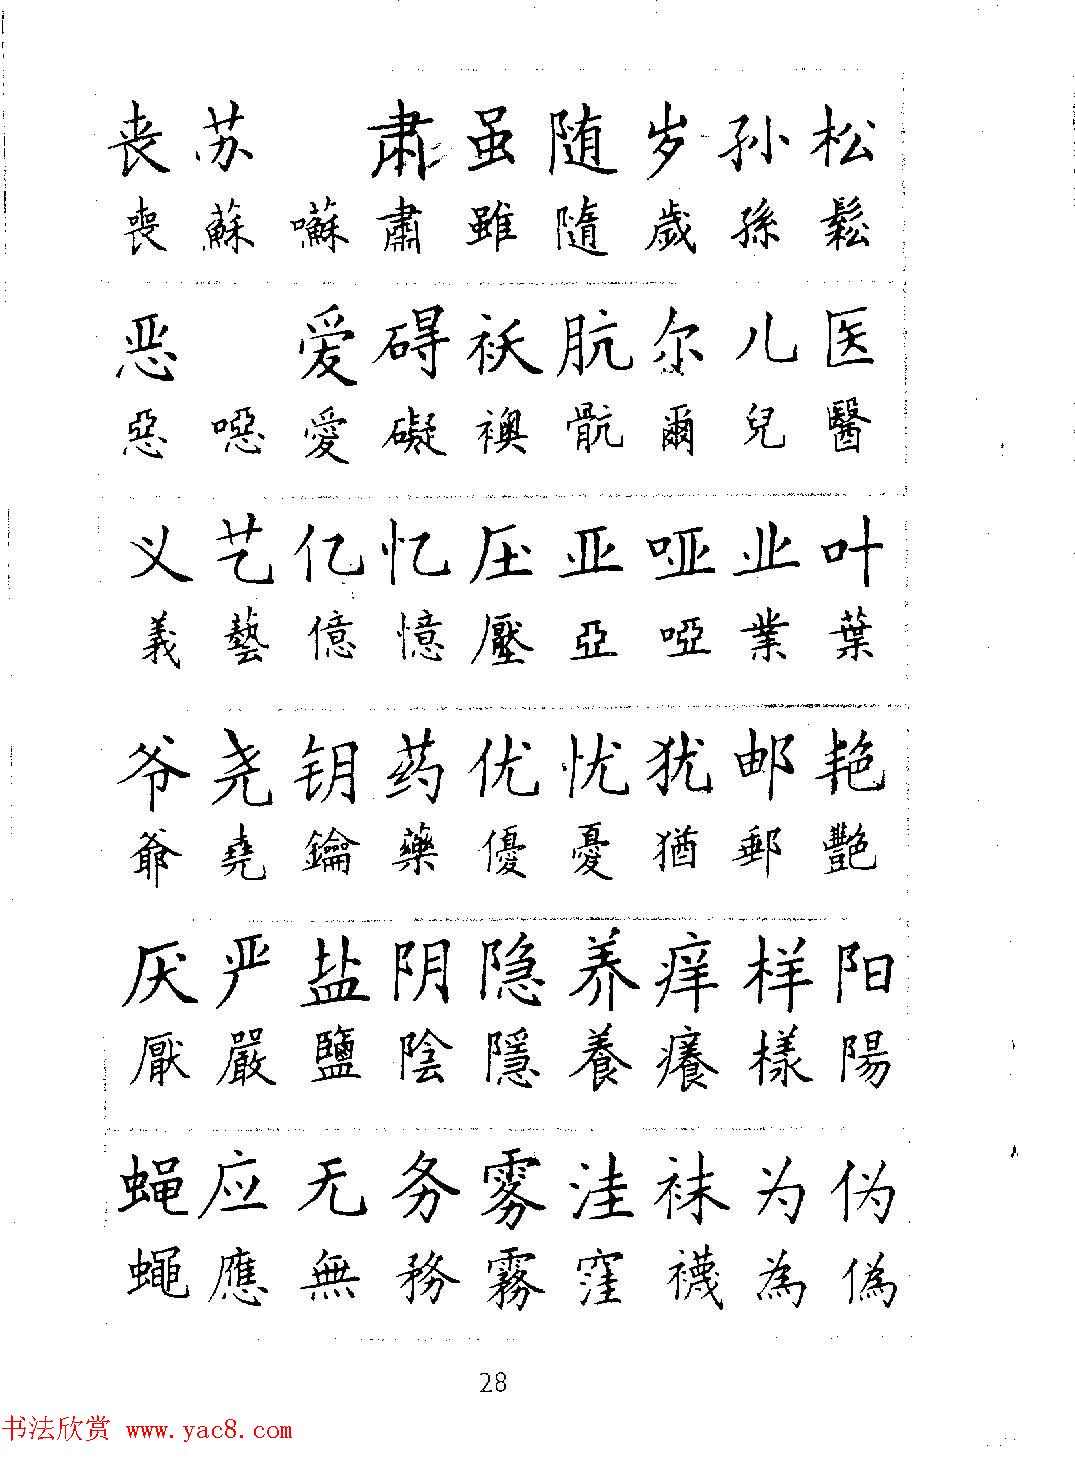 丧 苏 肃 虽 随 岁 孙 松
喪 蘇 囌 肅 雖 隨 歲 孫 鬆
恶 爱 碍 袄 肮 尔 儿 医
惡 噁 愛 礙 襖 骯 爾 兒 醫
义 艺 亿 忆 压 亚 哑 业 叶
義 藝 億 憶 壓 亞 啞 業 葉
爷 尧 钥 药 优 忧 犹 邮 艳
爺 堯 鑰 藥 優 憂 猶 郵 艷
厌 严 盐 阴 隐 养 痒 样 阳
厭 嚴 鹽 陰 隱 養 癢 樣 陽
蝇 应 无 务 雾 洼 袜 为 伪
蠅 應 無 務 霧 窪 襪 為 偽
28
书法欣赏 www.yac8.com